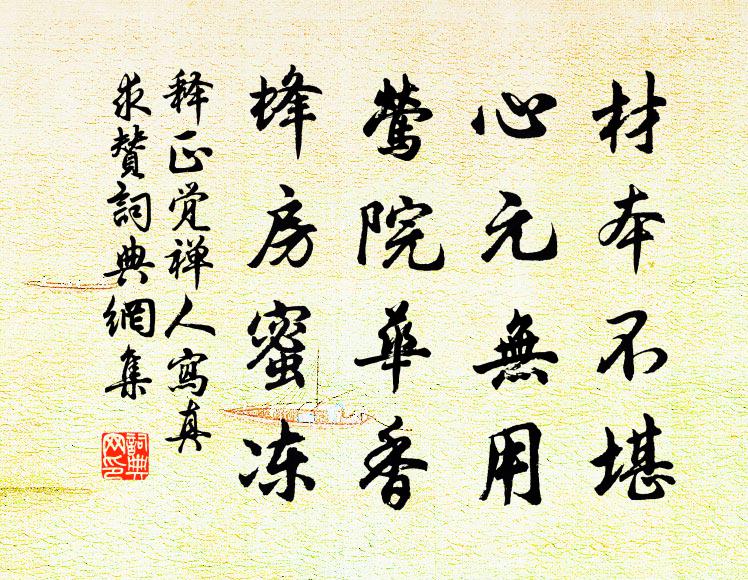 材本不堪
心元無用
莺院華香
蜂房蜜冻
释正觉禅人寫真
求赞詞典網集
詞典
网印